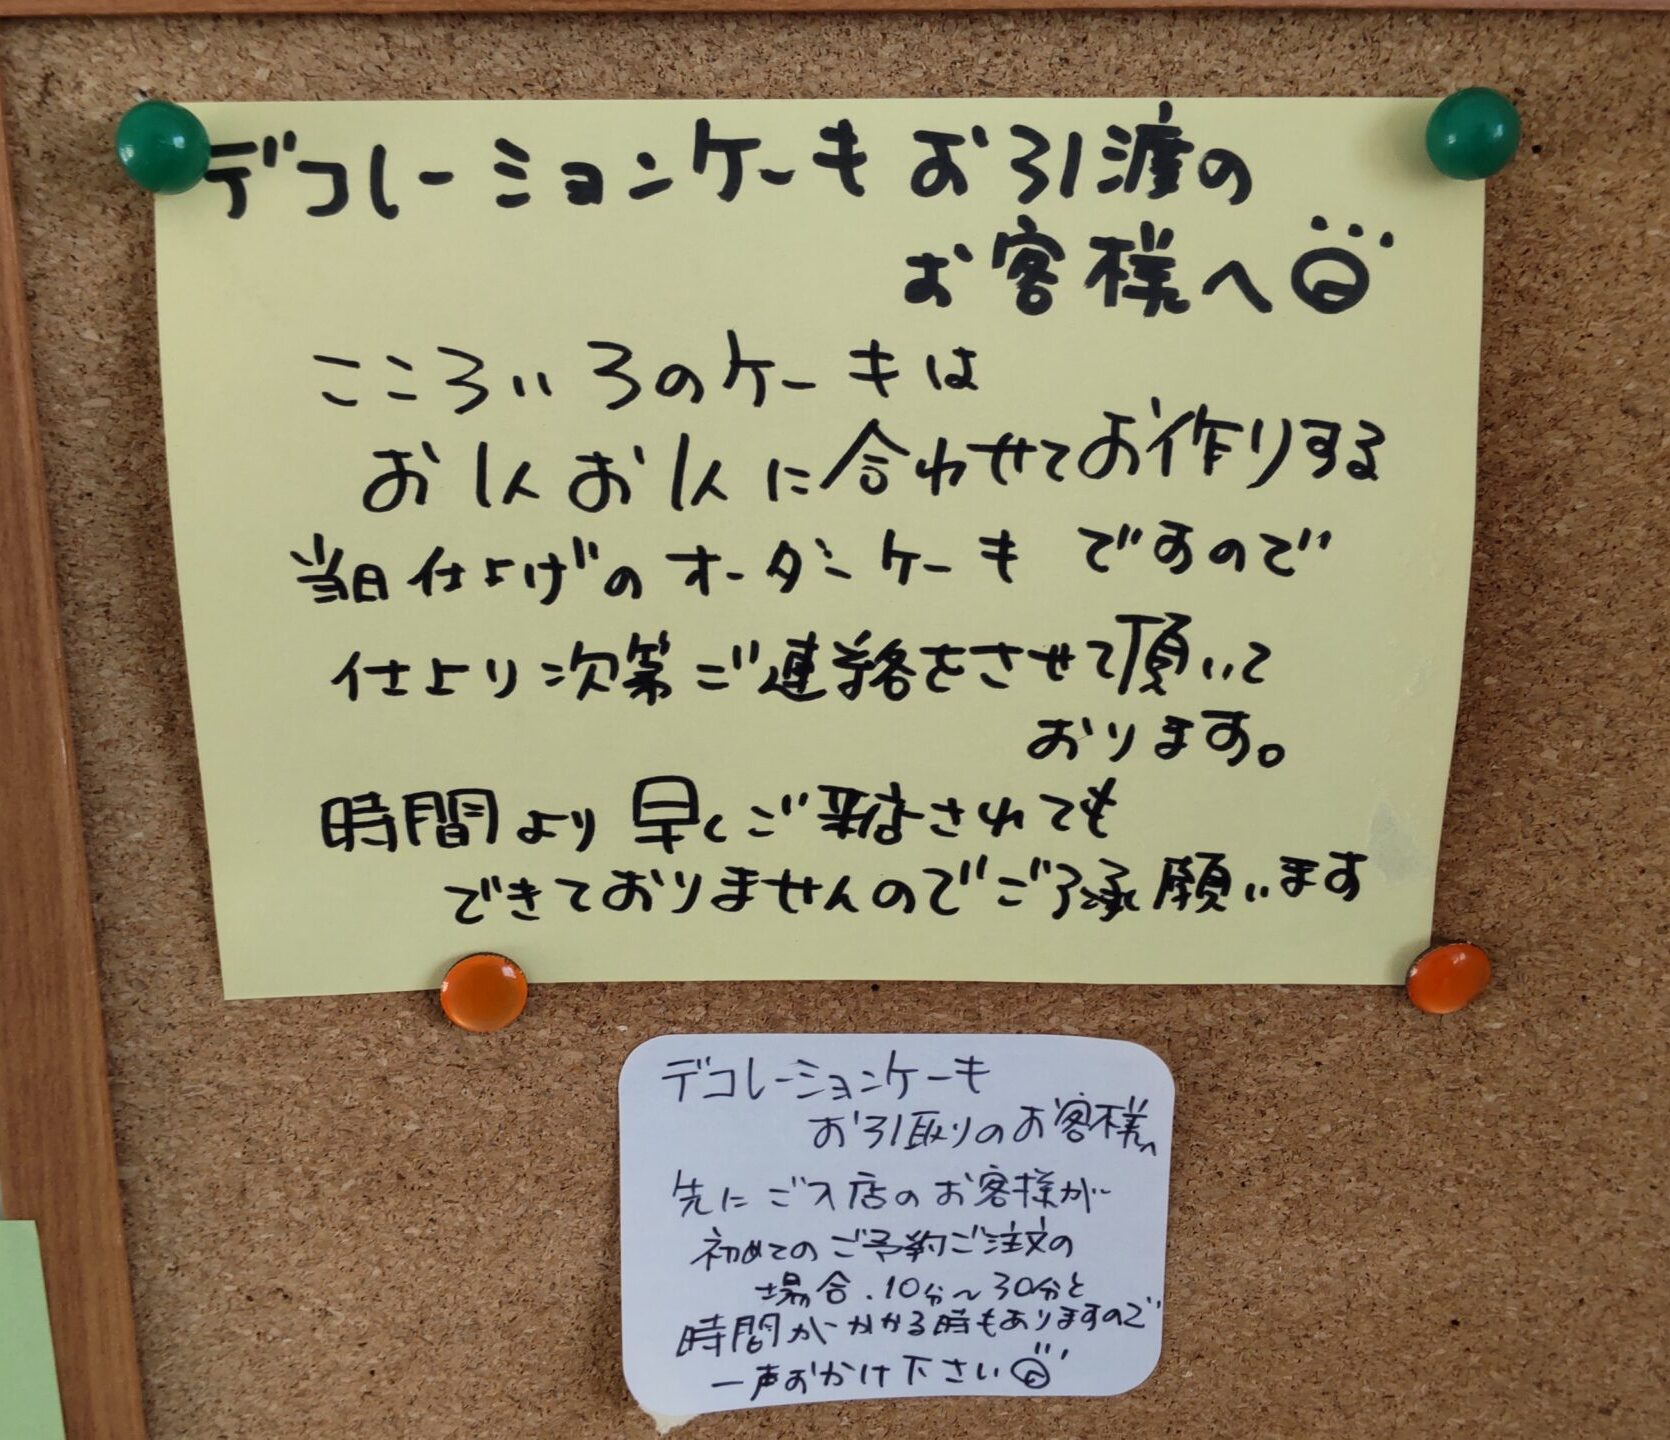 デコレーションケーキお引渡の
お客様へ
こころいろのケーキは
お1人お1人に合わせてお作りする
当日仕上げのオーダーケーキですので
仕上り次第ご連絡をさせて頂いて
おります。
時間より早くご来店されても
できておりませんのでご了承願います
デコレーションケーキ
お引取りのお客様へ
先にご入店のお客様が
初めてのご予約ご注文の
場合、10分〜30分と
時間がかかる時もありますので
一声おかけ下さい